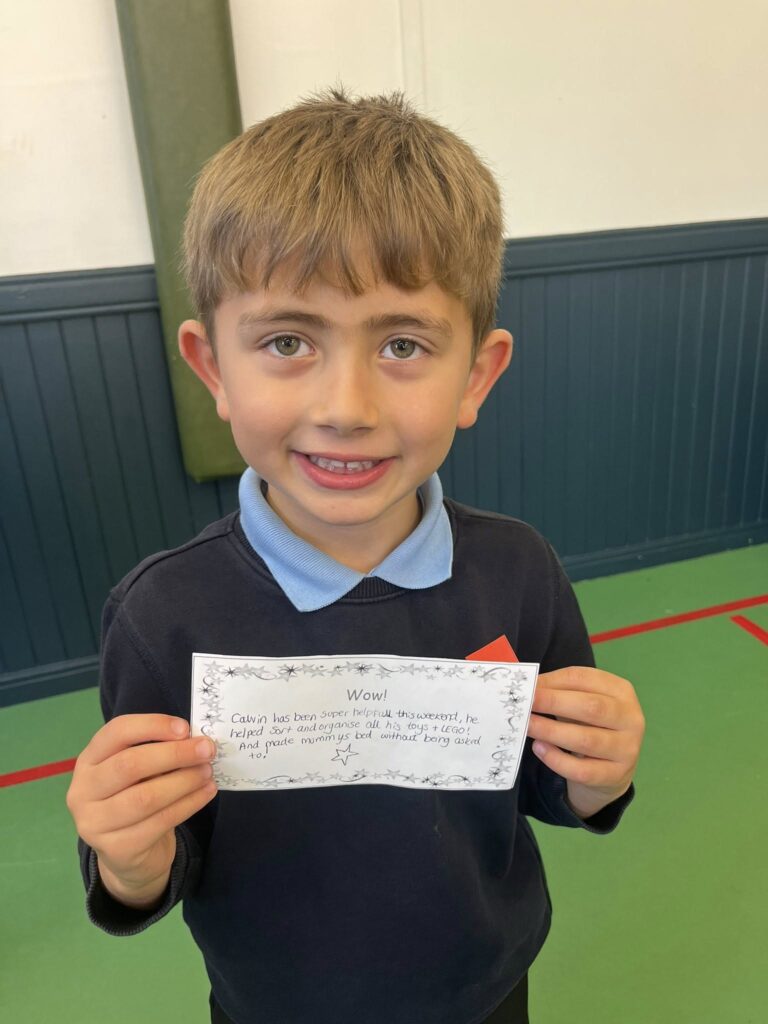 Wow!
Calvin has been super helpfull this weekend, he
helped sort and organise all his toys + LEGO!
And made mummys bed without being asked
to!